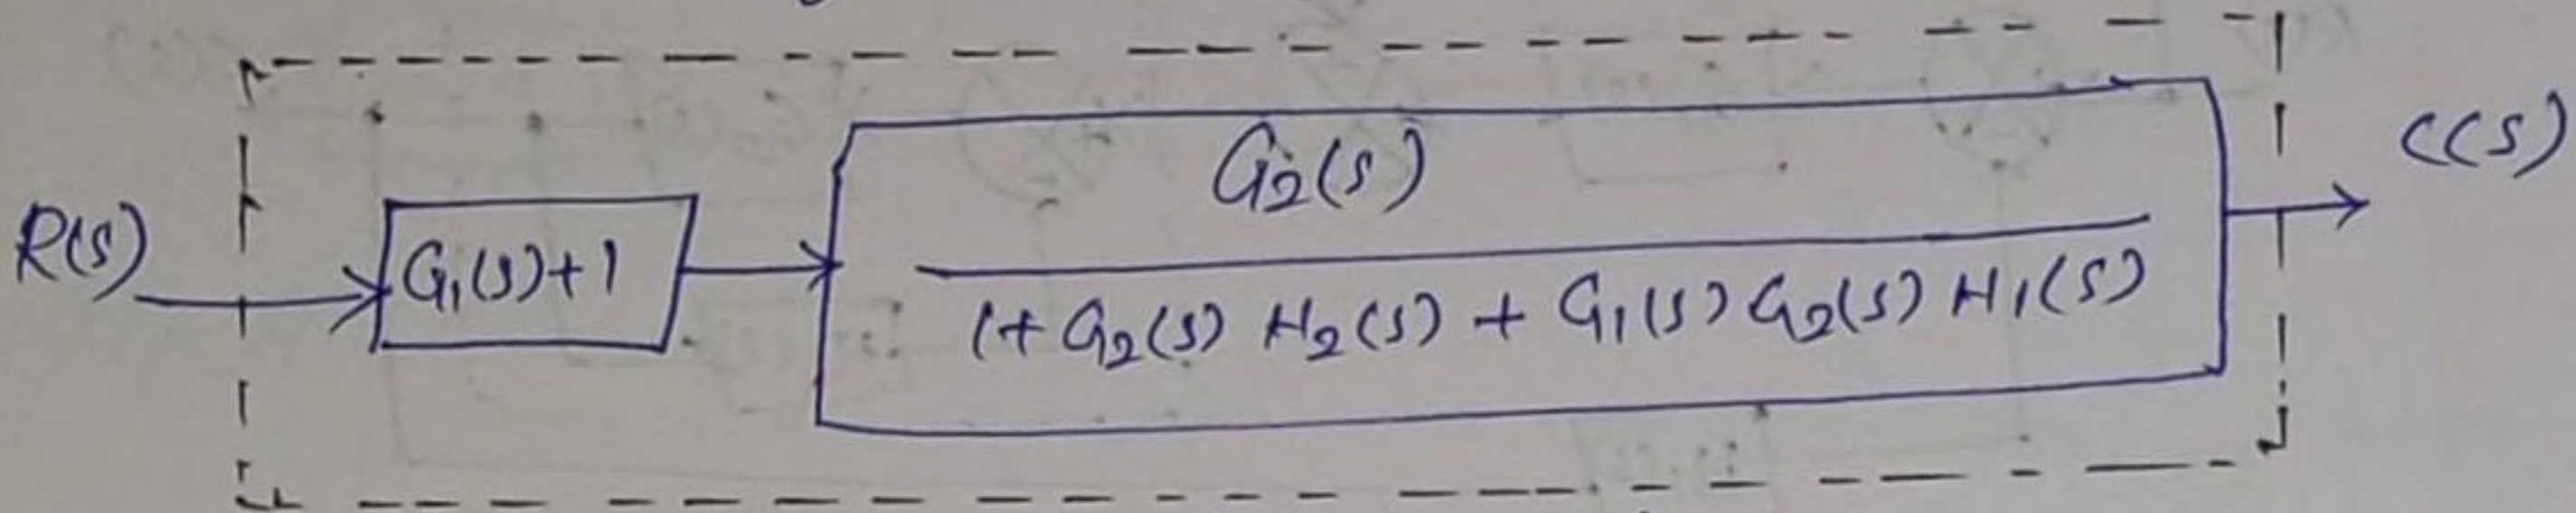 R(s)
G1(s)+1
G2(s)
1+ G2(s) H2(s) + G1(s) G2(s) H1(s)
C(s)